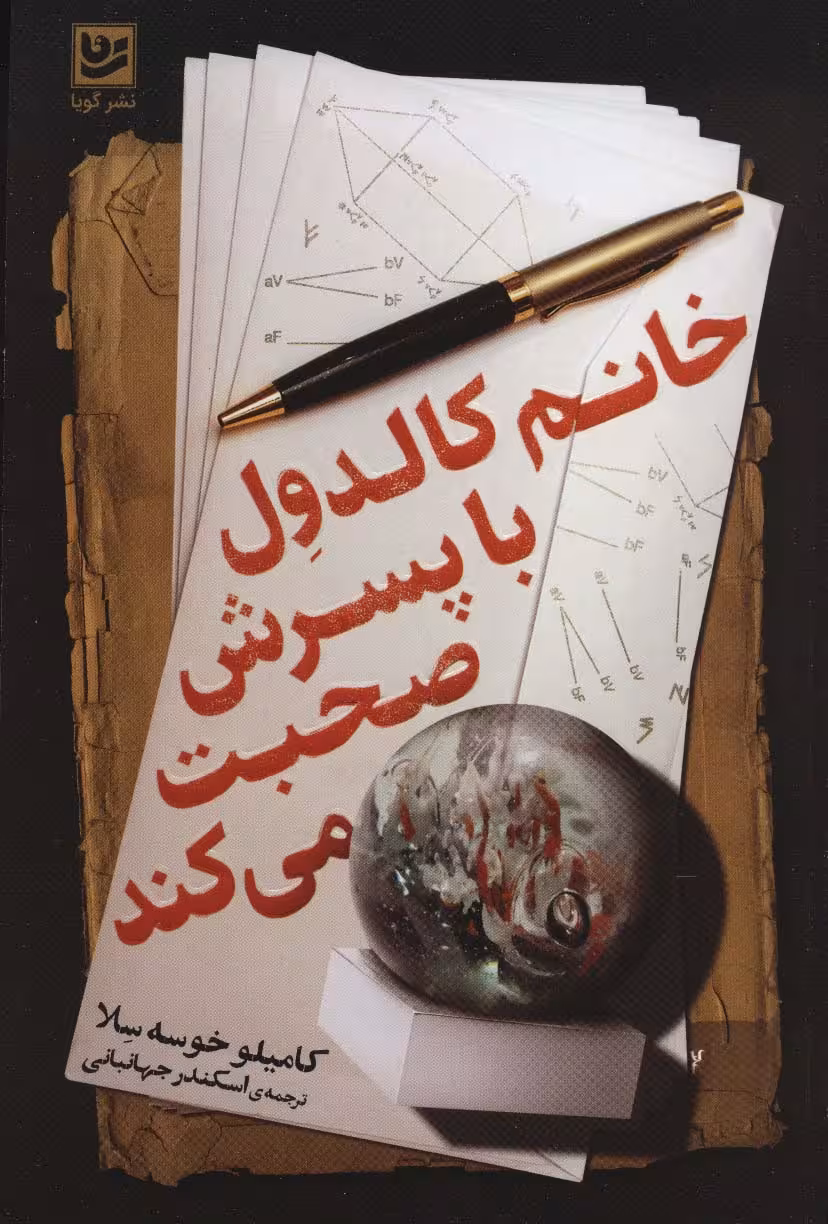 نشر گویا
aV
bV
bF
aF
خانم کالدوِل
با پسرش
صحبت
می‌کند
bV
bF
bF
aV
aV
bF
bV
bV
bF
کامیلو خوسه سِلا
ترجمه‌ی اسکندر جهانبانی